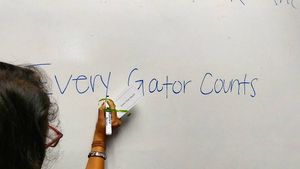 Every Gator Counts